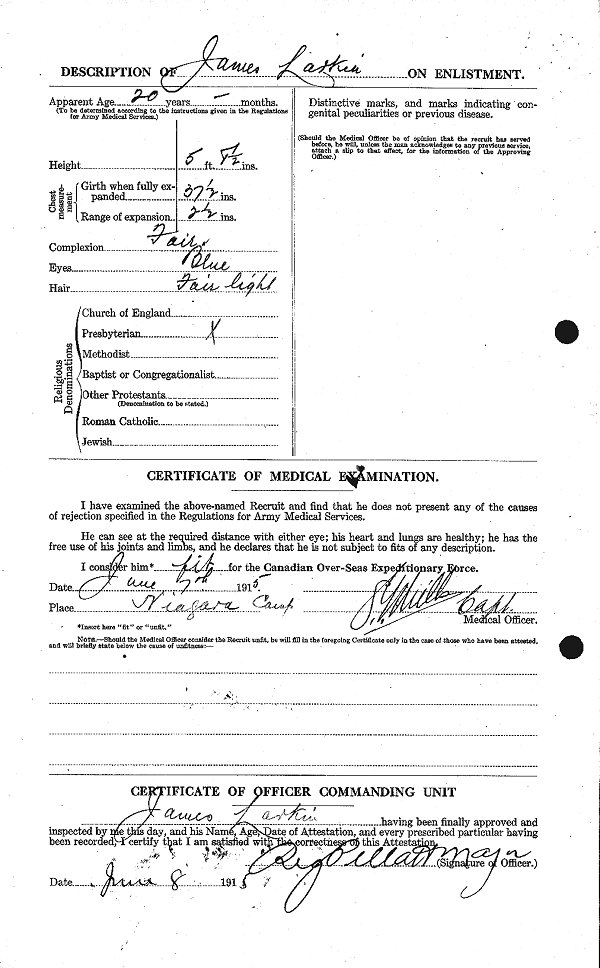 DESCRIPTION OF James Larkin ON ENLISTMENT.
Apparent Age 20 years – months.
(To be determined according to the instructions given in the Regulations
for Army Medical Services.)
Height 5 ft. 8½ ins.
Chest measurement
Girth when fully expanded 37½ ins.
Range of expansion 2½ ins.
Complexion Fair
Eyes Blue
Hair Fair light
Religious Denominations
Church of England
Presbyterian X
Methodist
Baptist or Congregationalist
Other Protestants
(Denomination to be stated.)
Roman Catholic
Jewish
Distinctive marks, and marks indicating con-
genital peculiarities or previous disease.
(Should the Medical Officer be of opinion that the recruit has served
before, he will, unless the man acknowledges to any previous service,
attach a slip to that effect, for the information of the Approving
Officer.)
CERTIFICATE OF MEDICAL EXAMINATION.
I have examined the above-named Recruit and find that he does not present any of the causes
of rejection specified in the Regulations for Army Medical Services.
He can see at the required distance with either eye; his heart and lungs are healthy; he has the
free use of his joints and limbs, and he declares that he is not subject to fits of any description.
I consider him* fit for the Canadian Over-Seas Expeditionary Force.
Date June 7th 1915
Place Niagara Camp Capt.
Medical Officer.
*Insert here "fit" or "unfit."
NOTE.—Should the Medical Officer consider the Recruit unfit, he will fill in the foregoing Certificate only in the case of those who have been attested,
and will briefly state below the cause of unfitness:—
CERTIFICATE OF OFFICER COMMANDING UNIT
James Larkin having been finally approved and
inspected by me this day, and his Name, Age, Date of Attestation, and every prescribed particular having
been recorded, I certify that I am satisfied with the correctness of this Attestation.
Reg Pellatt Major (Signature of Officer.)
Date June 8 1915